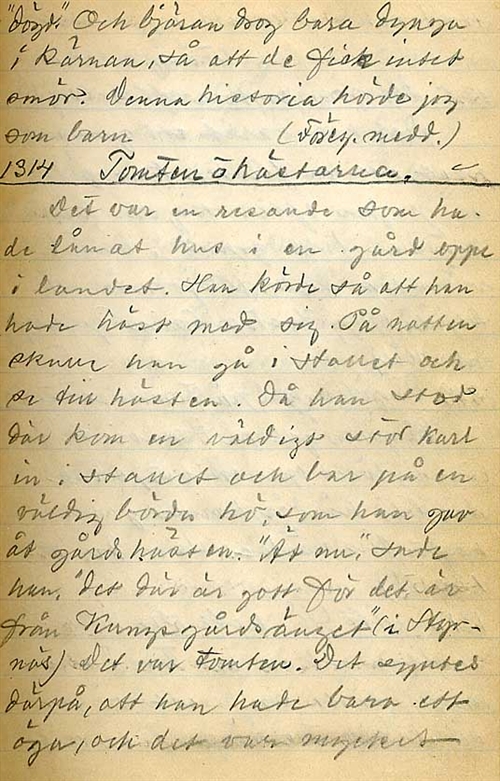 "döyd." Och bjäran drog bara dynga
i kärnan, så att de fick intet
smör. Denna historia hörde jag
som barn (Förey. medd.)
1314 Tomten ō hästarna.
Det var en resande som ha-
de lånat hus i en gård oppe
i landet. Han körde så att han
hade häst med sig. På natten
skulle han gå i stallet och
se till hästen. Då han stod
där kom en väldigt stor karl
in i stallet och bar på en
väldig börda hö, som han gav
åt gårdshästen. "Ät nu," sade
han, "det där är gott för det är
från Kungsgårdsänget" (i Styr-
näs) Det var tomten. Det syntes
därpå, att han hade bara ett
öga, och det var mycket